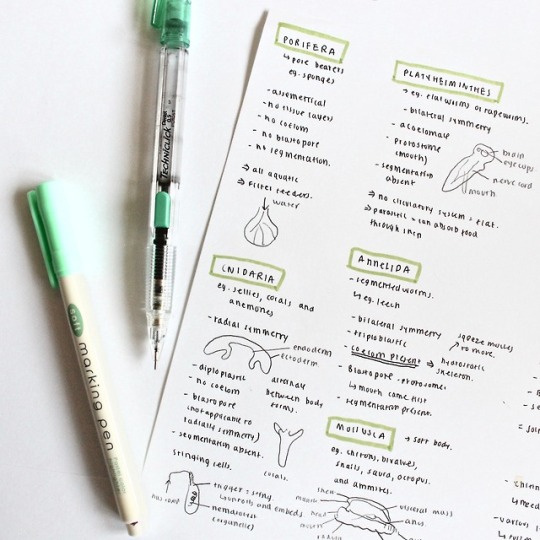 PORIFERA
↳ pore bearers
eg. sponges
- assemetrical
- no tissue layers
- no coelom
- no blastopore
- no segmentation.
⇒ all aquatic
⇒ filter feeders.
water
PLATYHELMINTHES
→ eg. flatworms or tapeworms.
- bilateral symmetry
- acoelomate
- protostome
(mouth)
- segmentation
absent
brain
eye cups
nerve cord
mouth
⇒ no circulatory system = flat.
⇒ parasitic = can absorb food
through skin
CNIDARIA
eg. jellies, corals and
anemones
- radial symmetry
endoderm
ectoderm
- diploplastic
- no coelom
- blastopore
(not applicable to
radially symmetry)
- segmentation absent.
stinging cells.
alternate
between body
forms.
corals.
trigger → sting
nematocyst
(organelle)
ANNELIDA
- segmented worms.
↳ eg. leech
- bilateral symmetry
- triploblastic
- coelom present → hydrostatic
skeleton.
squeeze muscles
to move.
- Blastopore - protosome
↳ mouth came first
- segmentation present.
MOLLUSCA
→ soft body.
eg. chitons, bivalves,
snails, squid, octopus.
and ammites.
visceral mass
anus
head
TECHNICLICK
0.5
soft
marking pen